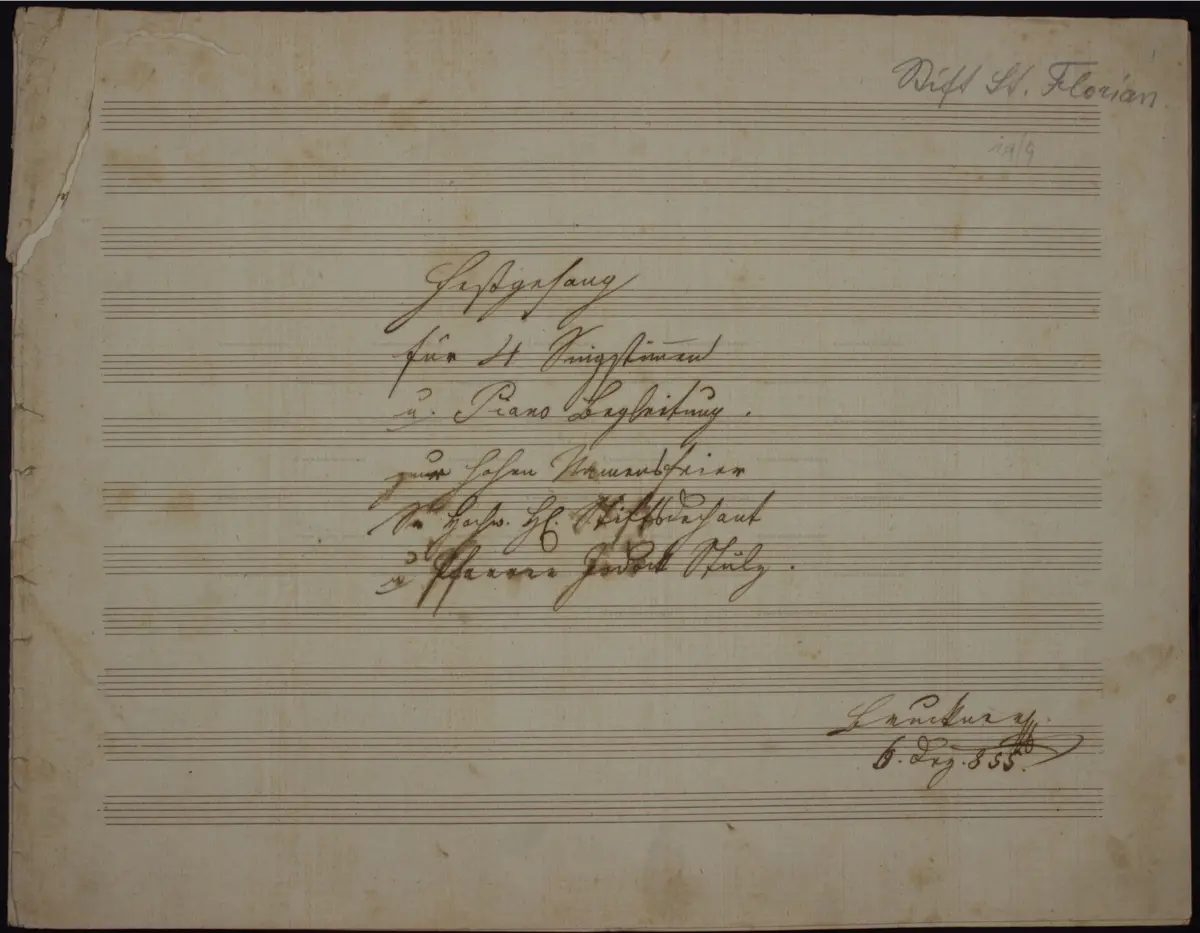 Stift St. Florian
19/9
Festgesang
für 4 Singstimmen
u. Piano Begleitung.
zur hohen Namensfeier
Sr Hochw. H. Stiftsdechant
u Pfarrer Jodok Stülz.
Bruckner
6. Dez. 855.